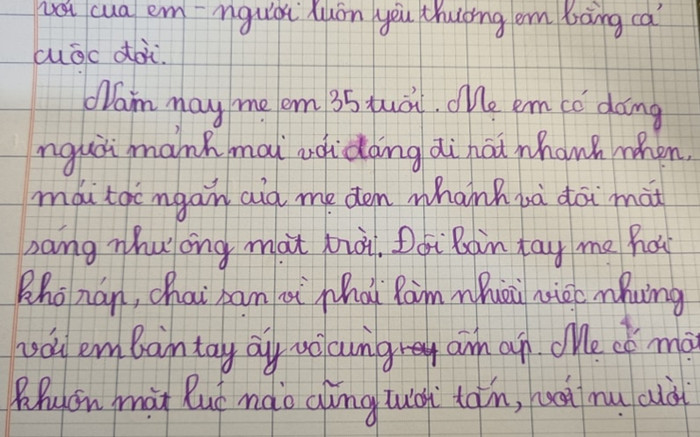 vời của em - người luôn yêu thương em bằng cả
cuộc đời.
Năm nay mẹ em 35 tuổi. Mẹ em có dáng
người mảnh mai với dáng đi rất nhanh nhẹn,
mái tóc ngắn của mẹ đen nhánh và đôi mắt
sáng như ông mặt trời. Đôi bàn tay mẹ hơi
khô ráp, chai sạn vì phải làm nhiều việc nhưng
với em bàn tay ấy vô cùng ấm áp. Mẹ có một
khuôn mặt lúc nào cũng tươi tắn, với nụ cười